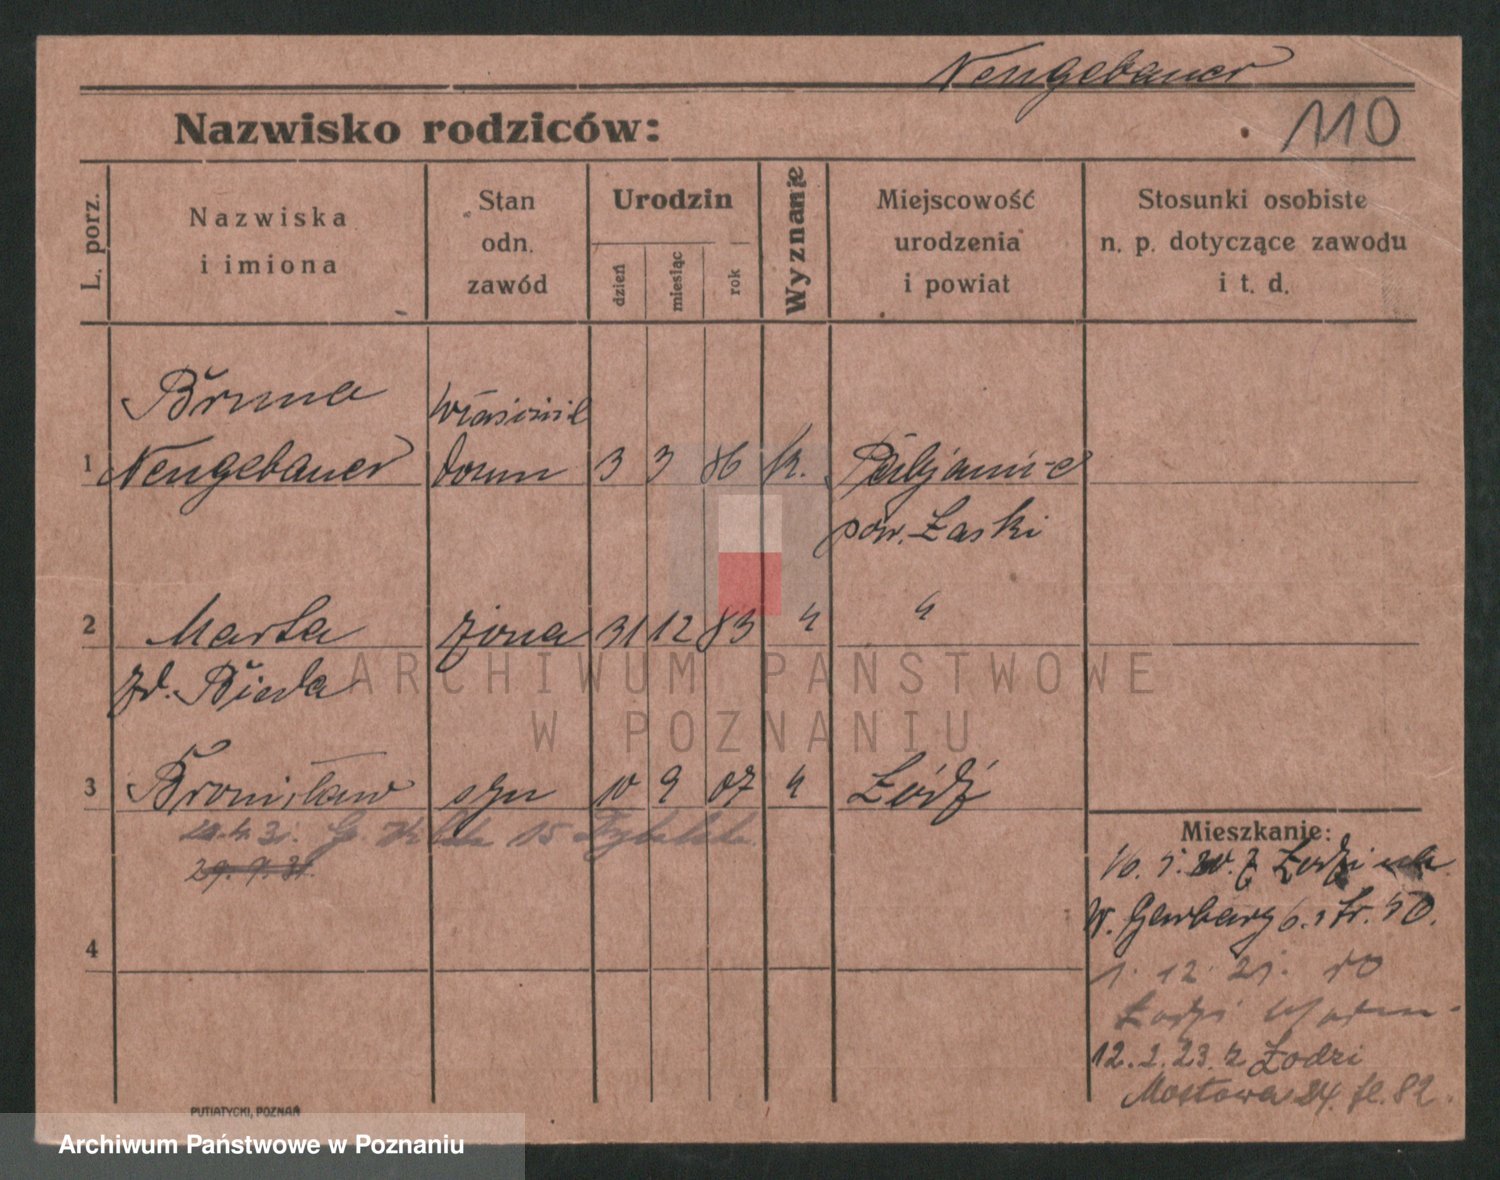 Neugebauer
110
Nazwisko rodziców:
L. porz.
Nazwiska
i imiona
Stan
odn.
zawód
Urodzin
dzień
miesiąc
rok
Wyznanie
Miejscowość
urodzenia
i powiat
Stosunki osobiste
n. p. dotyczące zawodu
i t. d.
Bruno właścicel
1 Neugebauer domu 3 3 86 k. Pabjanice
pow. Łaski
2 Marta żona 31 12 83 " "
zd. Bieda
3 Bronisław syn 10 9 07 " Łódź
15
Mieszkanie:
16. 5. 20. z Łodzi
W. Garbary 50.
4
1. 12. 21. do
Łodzi
12. 2. 23. z Łodzi
Mostowa 24. fl. 82.
PUTIATYCKI, POZNAŃ
ARCHIWUM PAŃSTWOWE
W POZNANIU
Archiwum Państwowe w Poznaniu